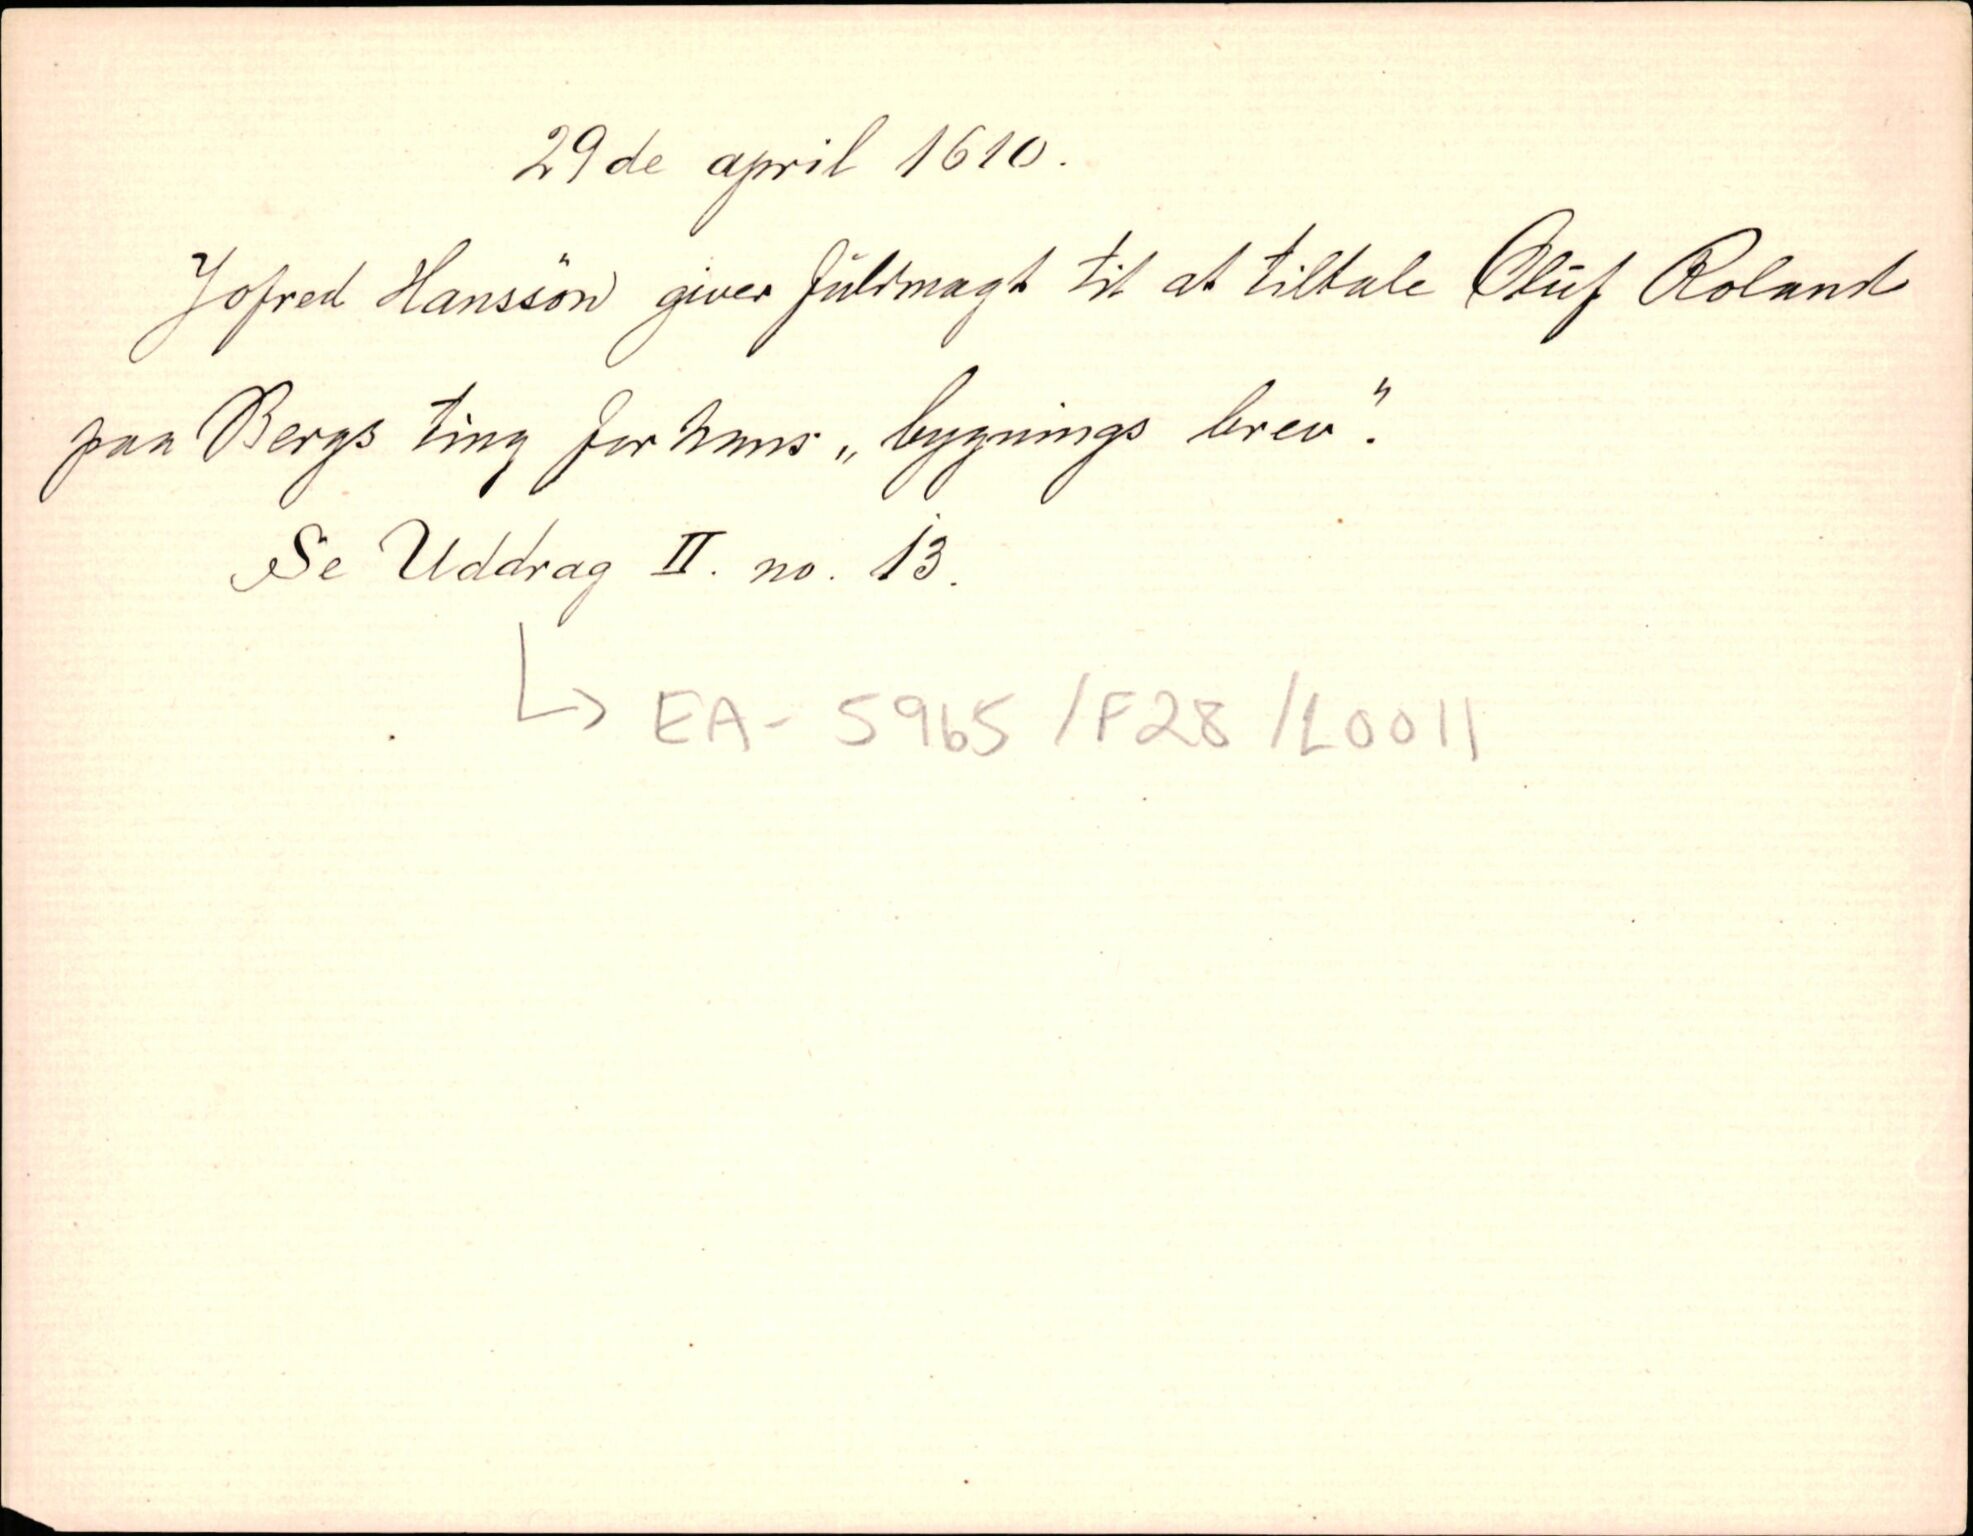 29de april 1610.
Jofred Hanssön giver fuldmagt til at tiltale Oluf Roland
paa Bergs ting for hans „bygnings brev".
Se Uddrag II. no. 13.
↳ EA- 5965 /F28 /L0011